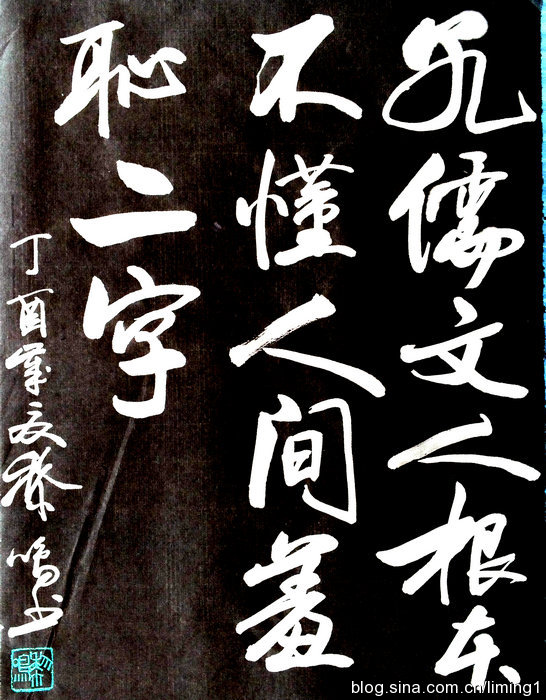 孔儒文人根本
不懂人间羞
恥二字
丁酉歲夏黎鸣书
blog.sina.com.cn/liming1